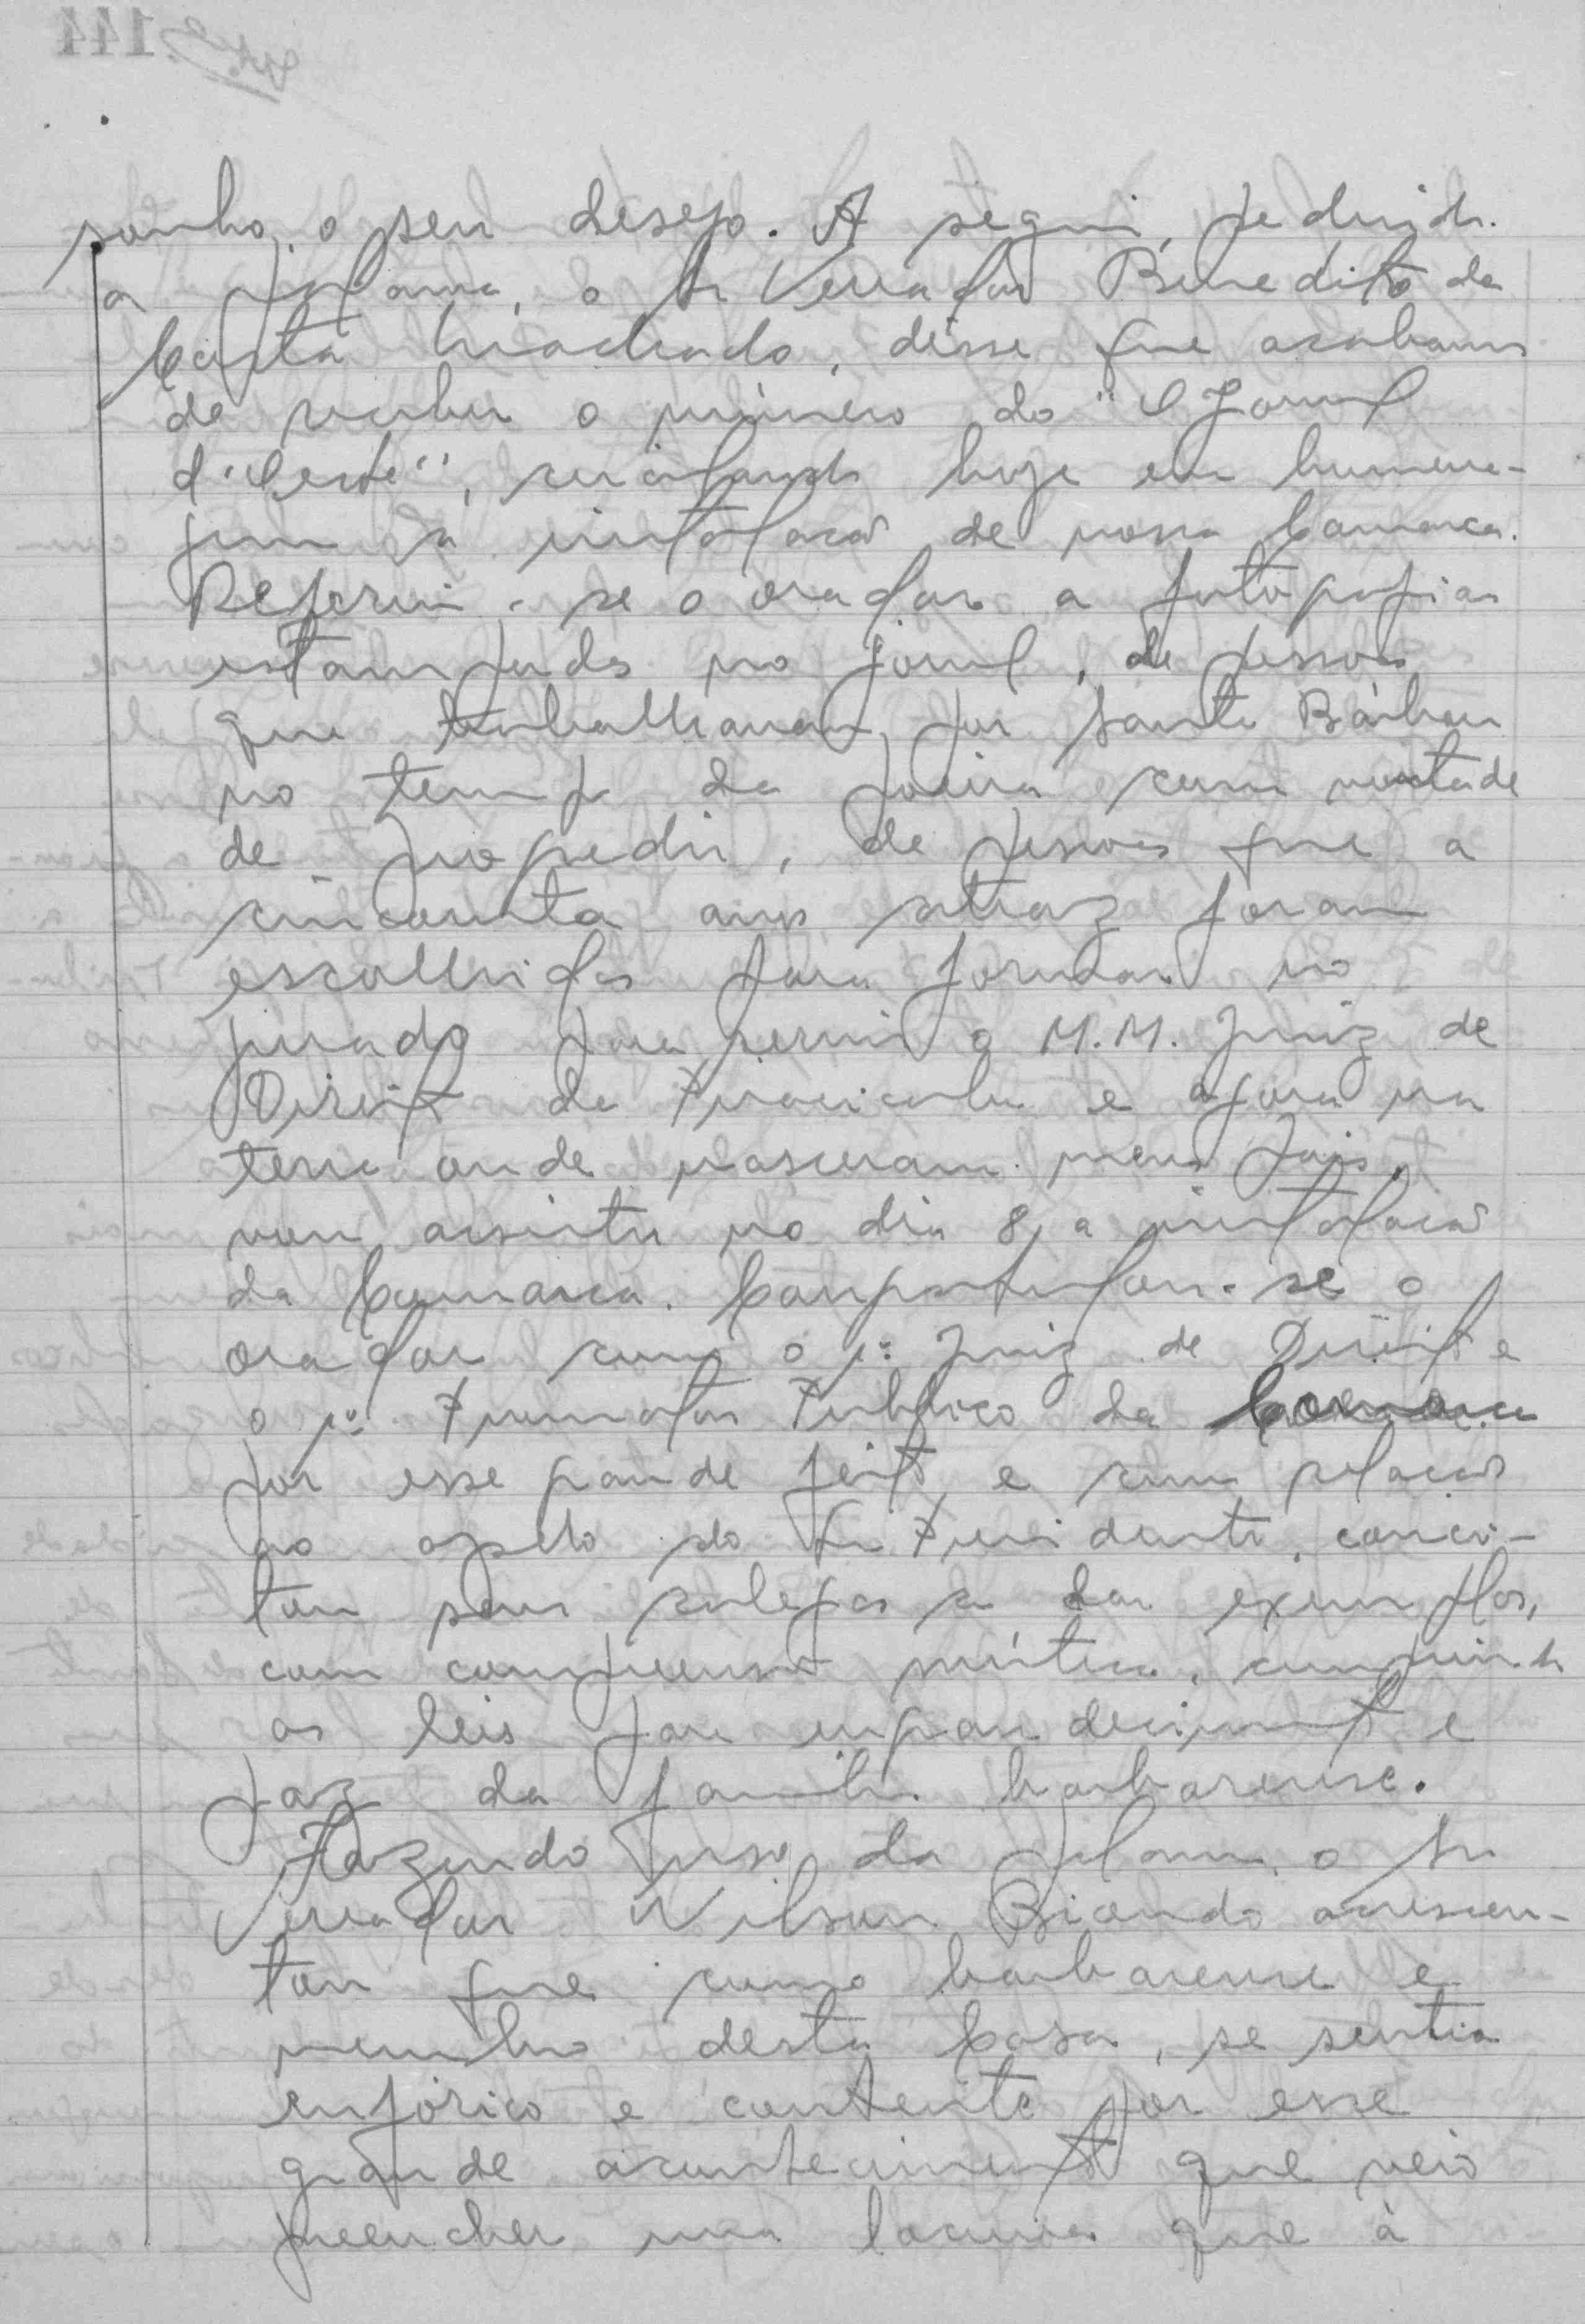 sonho, o seu desejo. A seguir, pedindo
a palavra, o Sr Vereador Benedito da
Costa Machado, disse que acabavam
de receber o número do "O Jornal
d'Oeste", circulando hoje em homena-
gem a instalação de nossa Comarca.
Referiu-se o orador a fotografias
estampadas no jornal, de pessoas
que trabalharam por Santa Bárbara
no tempo da poeira com vontade
de progredir, de pessoas que a
cincoenta anos atraz foram
escolhidas para formar no
jurado para servir o M.M. Juiz de
Direito de Piracicaba e agora na
terra onde nasceram meus pais,
vou assistir no dia 8, a instalação
da Comarca. Congratulou-se o
orador com o 1º Juiz de Direito e
o 1º Promotor Publico da Comarca
por esse grande feito, e com relação
ao apelo do Sr Presidente, conci-
tou seus colegas a dar exemplos,
com compreensão mútua, cumprindo
as leis para engrandecimento e
paz da familia barbarense.
Fazendo uso da palavra o Sr
Vereador Wilson Biondo acrescen-
tou que como barbarense e
membro desta Casa, se sentia
eufórico e contente por esse
grande acontecimento que veio
preencher uma lacuna que à